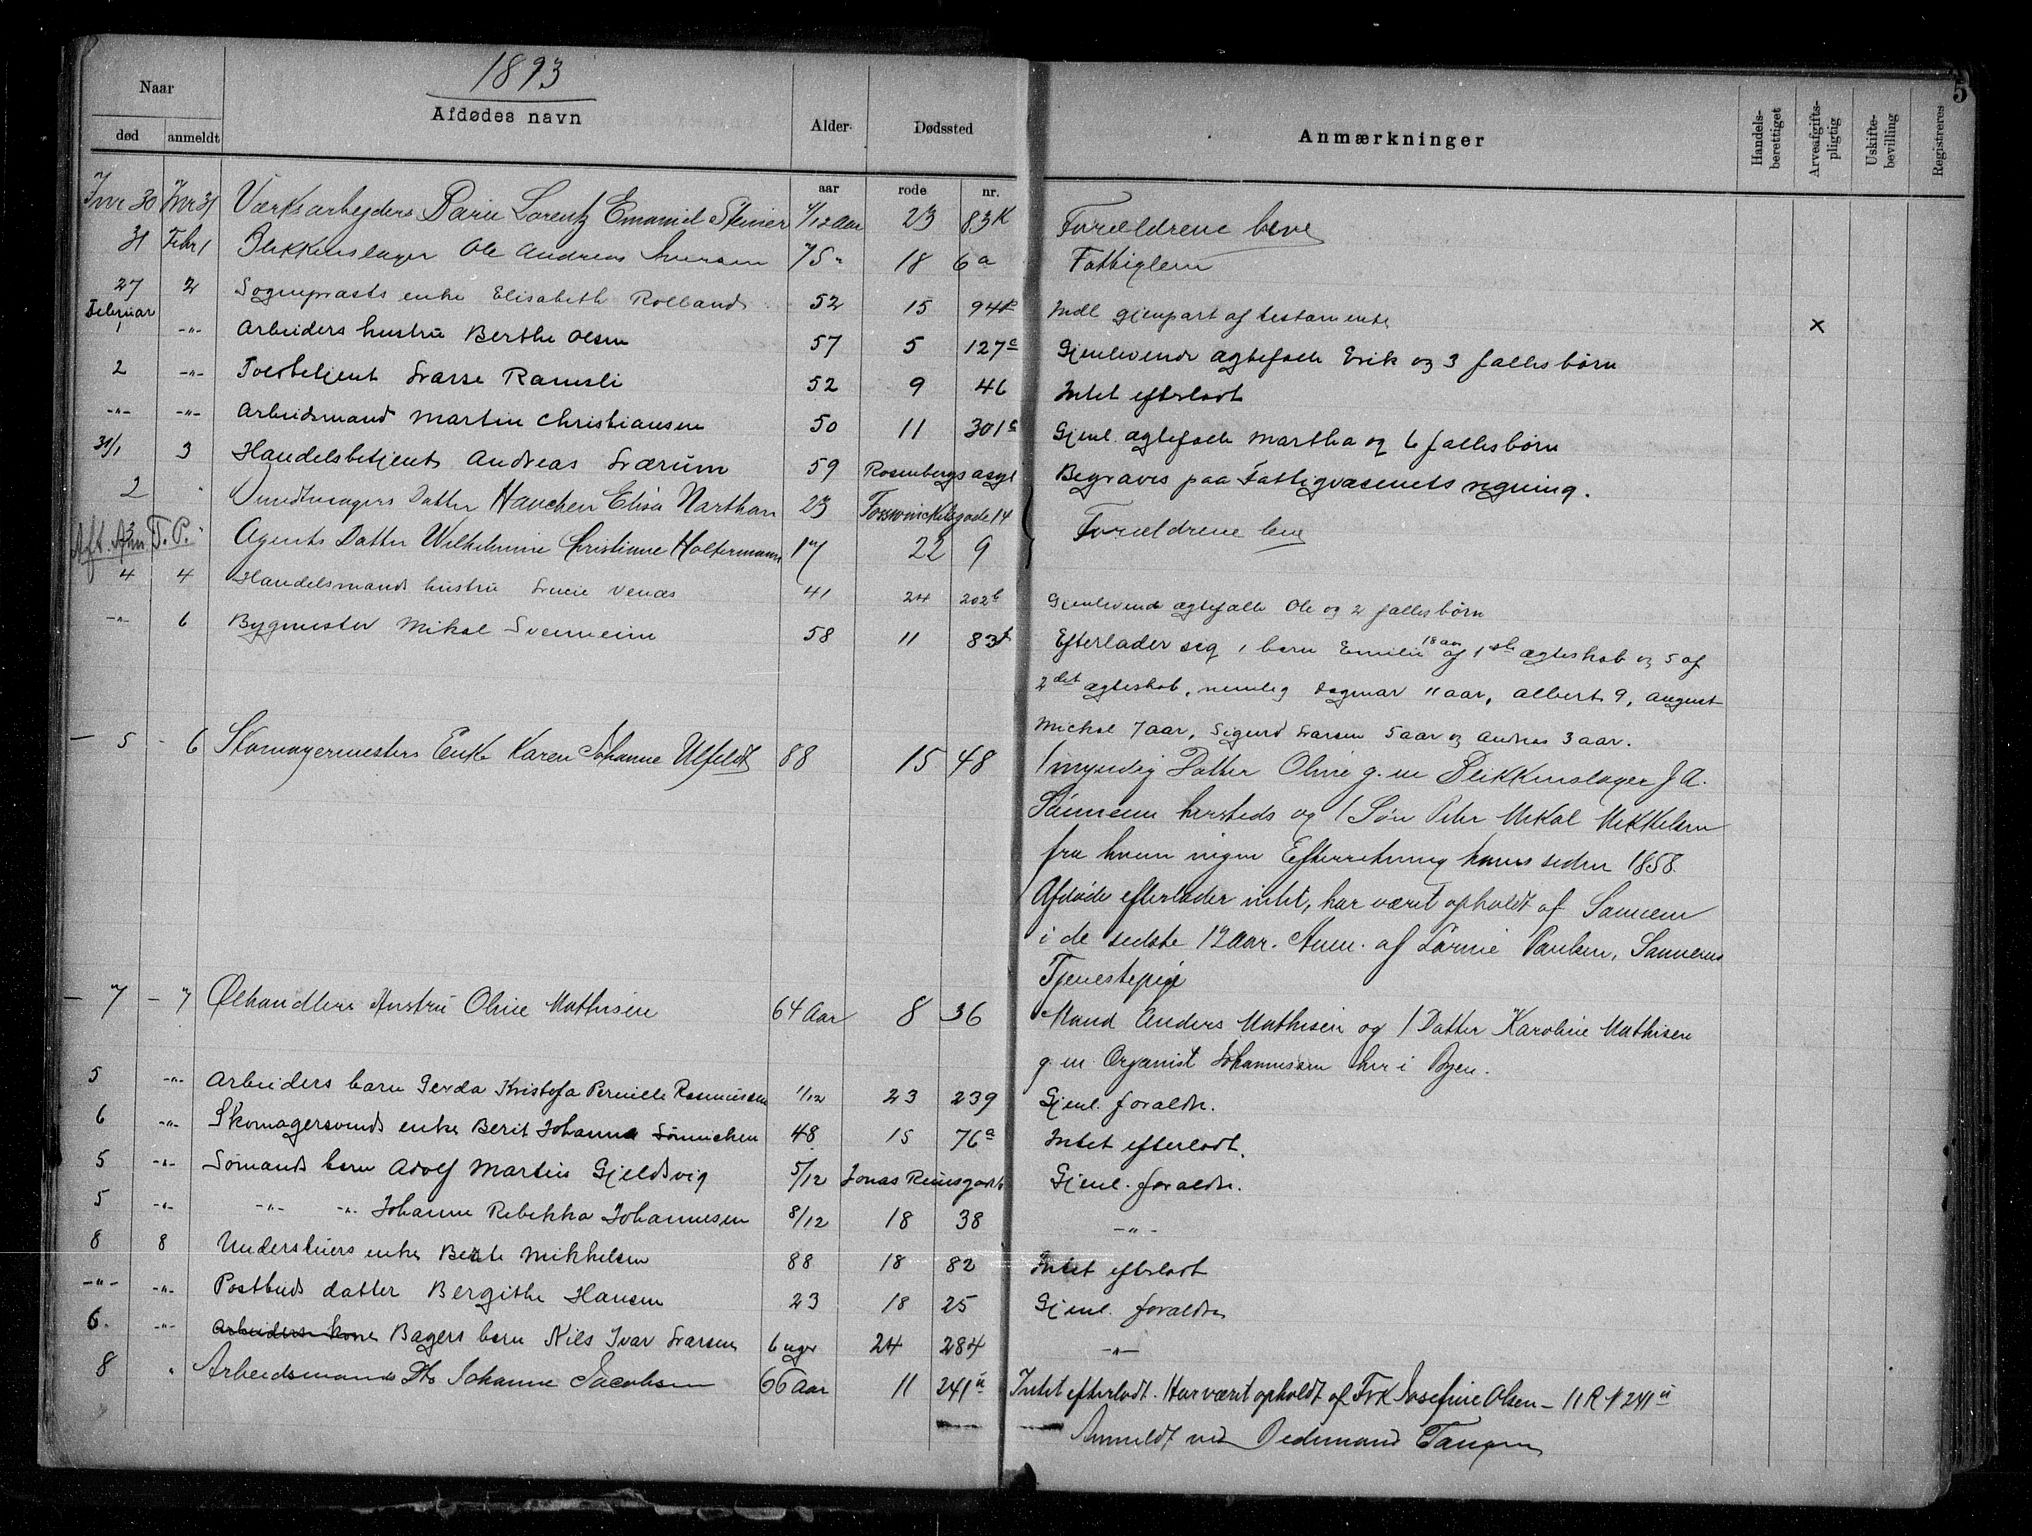 1893
5
Naar
død
anmeldt
Afdødes navn
Alder
aar
Dødssted
rode
nr.
Anmærkninger
Handels-berettiget
Arveafgifts-pligtig
Uskifte-bevilling
Registreres
Jnr 30 Jnr 31 Værksarbejders Barn Lorentz Emanuel Steiner 4/12 aar 23 83K Forældrene leve
31 Febr 1 Blikkenslager Ole Andreas Iversen 75 18 6a Fattiglem
27 2 Sogneprests enke Elisabeth Rolland 52 15 94 Indl gjenpart af testamente x
Februar
1 -"- Arbeiders hustru Berthe Olsen 57 5 127c Gjenlevende ægtefælle Erik og 3 fælles børn
2 -"- Toldbetjent Lasse Ramsli 52 9 46 Intet efterladt
-"- -"- Arbeidsmand Martin Christiansen 50 11 301c Gjenl. ægtefælle Martha og 6 fælles børn
31/1 3 Handelsbetjent Andreas Lærum 59 Rosenbergs asyl Begraves paa Fattigvæsenets regning.
2 " Datter Hanchen Elisa Narthan 23 gade 14 Forældrene leve
Aft. Anm. T. P. " Agents Datter Wilhelmine Christiane Holtermann 17 22 9
4 4 Handelsmands hustru Venæs 41 24 202b Gjenlevende ægtefælle Ole og 2 fælles børn
-"- 6 Bygmester Mikal Svenheim 58 11 83 Efterlader sig 1 barn Emilie 18 aar af 1ste ægteskab og 5 af
2det ægteskab, nemlig Dagmar 11 aar, Albert 9, August
Michal 7 aar, Sigurd Larsen 5 aar og Andreas 3 aar.
— 5 - 6 Skomagermesters Enke Karen Johanne Ulfeldt 88 15 48 1 myndig Datter Oline g. m Blikkenslager J. A.
Sannem hersteds og 1 Søn Peter Mikal Mikkelsen
fra hvem ingen Efterretning haves siden 1858.
Afdøde efterlader intet, har været opholdt af Sannem
i de sidste 12 aar. Anm. af Paulsen, Sannems
Tjenestepige
— 7 - 7 Ølhandlers Hustru Oline Mathisen 64 Aar 8 36 Mand Anders Mathisen og 1 Datter Karoline Mathisen
g. m Organist Johannessen her i Byen.
5 -"- Arbeiders barn Gerda Kristofa Pernille Rasmussen 1/12 23 239 Gjenl. forældre.
6 -"- Skomagersvends enke Berit Johanna Sønnichen 48 15 76a Intet efterladt.
5 -"- Sømands barn Adolf Martin Gjeldsvig 5/12 Jonas Reinsgade Gjenl. forældre.
5 -"- -"- -"- Johanne Rebekka Johannesen 8/12 18 38 -"-
8 8 enke Beate Mikkelsen 88 18 82 Intet efterladt
-"- -"- Postbuds datter Bergithe Hansen 23 18 25 Gjenl. forældre
6. -"- Arbeiders kone Bagers barn Nils Ivar Larsen 6 uger 24 284 -"-
8 " Arbeidsmands Johanne Jacobsen 66 Aar 11 241ii Intet efterladt. Har været opholdt af Frk Josefine Olsen — 11 R N 241ii
Anmeldt ved Bedemand Tangen